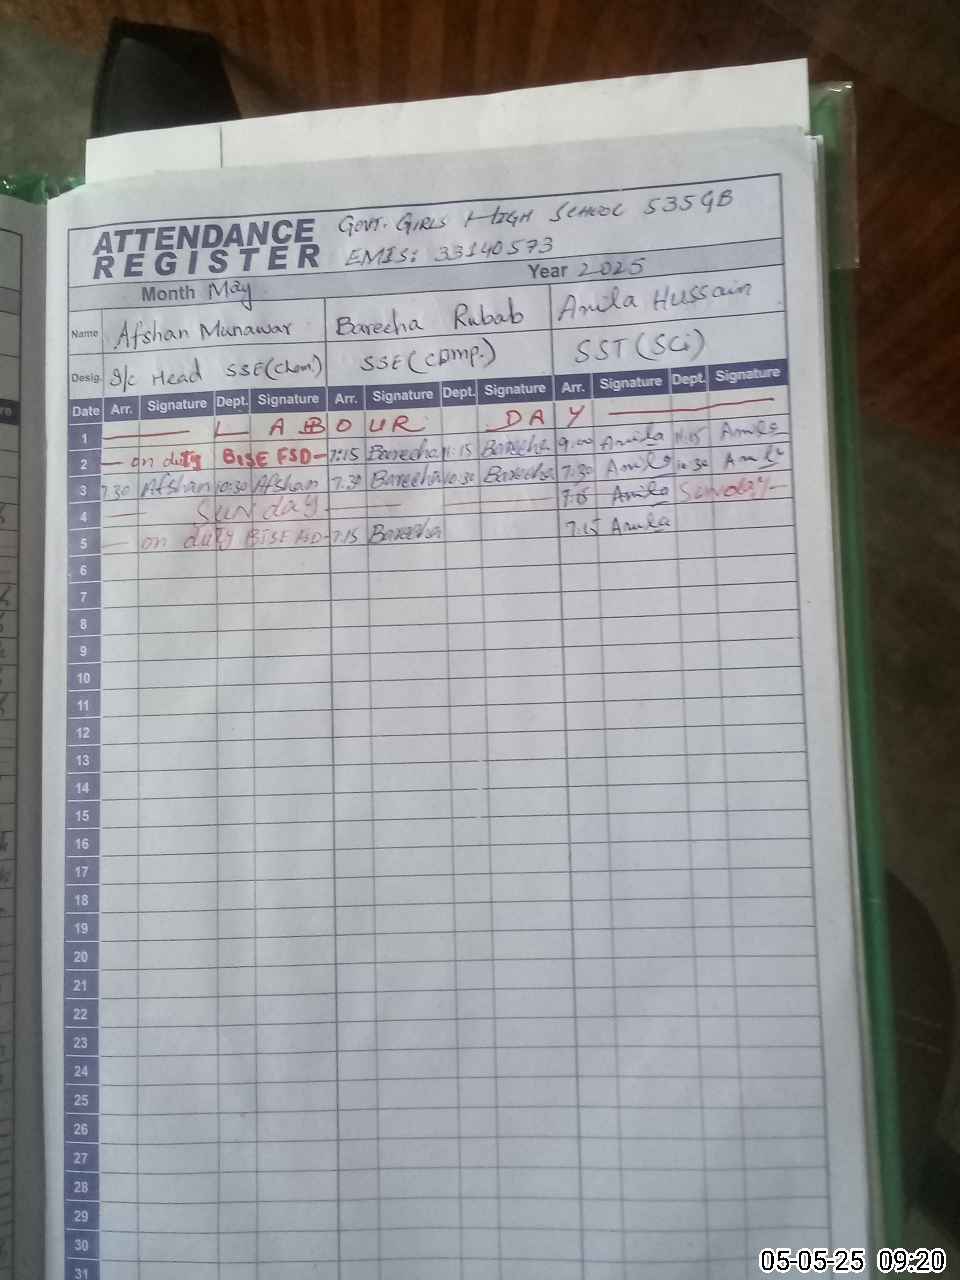 ATTENDANCE REGISTER
GOVT. GIRLS HIGH SCHOOL 535GB
EMIS: 33140573
Month May Year 2025
Name Afshan Munawar Barecha Rubab Anila Hussain
Desig. I/C Head SSE(Chem.) SSE(COMP.) SST(SCi)
Date Arr. Signature Dept. Signature Arr. Signature Dept. Signature Arr. Signature Dept. Signature
1 LABOUR DAY
2 on duty BISE FSD 7:15 Barecha 11:15 Barecha 9:00 Anila 11:15 Anila
3 7.30 Afshan 10:30 Afshan 7.30 Barecha 10:30 Barecha 7:30 Anila 10:30 Anila
4 Sunday 7:15 Anila Sunday
5 on duty BISE FSD 7:15 Barecha 7:15 Anila
6
7
8
9
10
11
12
13
14
15
16
17
18
19
20
21
22
23
24
25
26
27
28
29
30
31
05-05-25 09:20